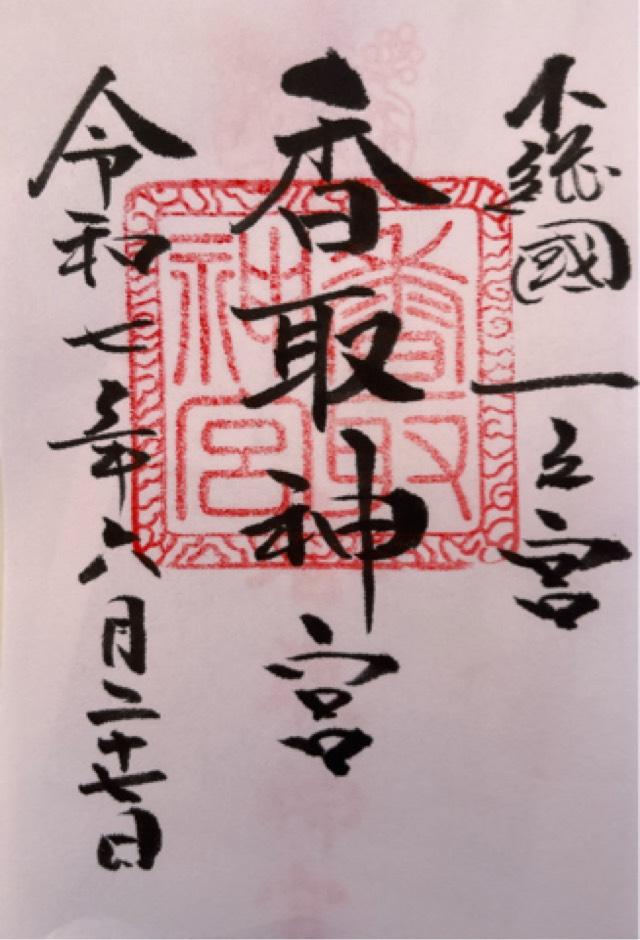 下総國一之宮
香取神宮
香取神宮
令和七年六月二十七日